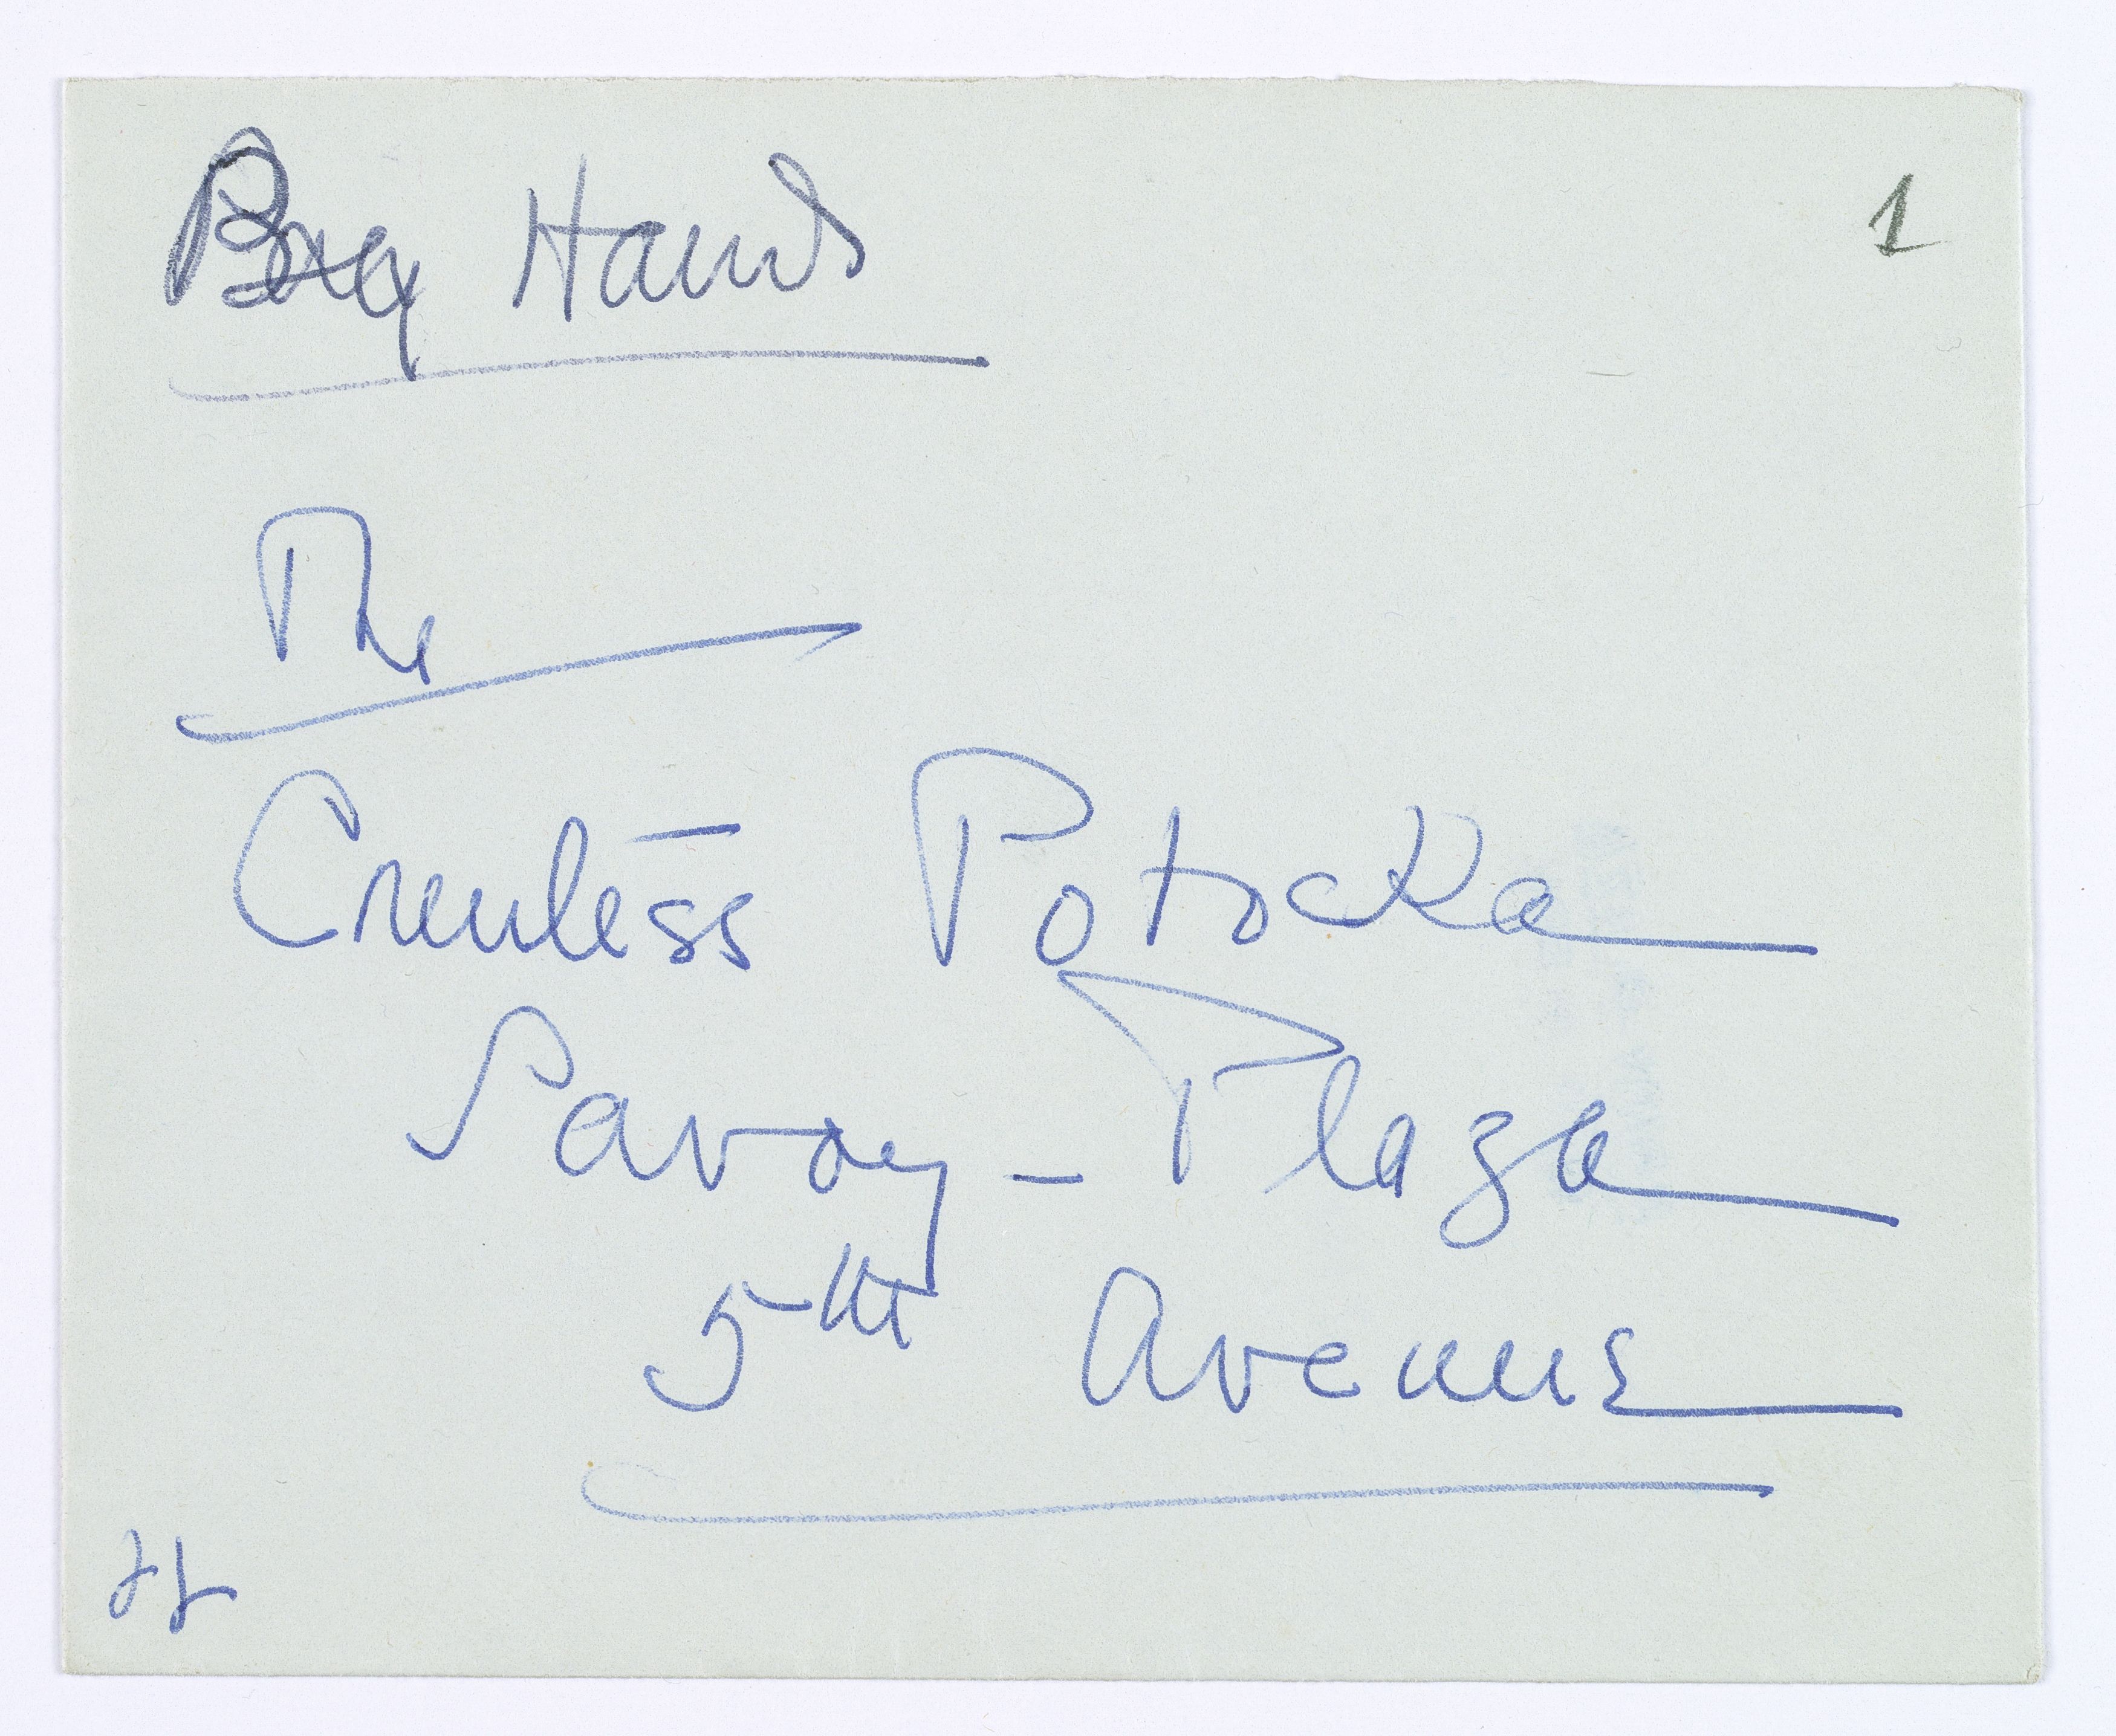 By Hand
1
The
Countess Potocka
Savoy - Plaza
5th Avenue